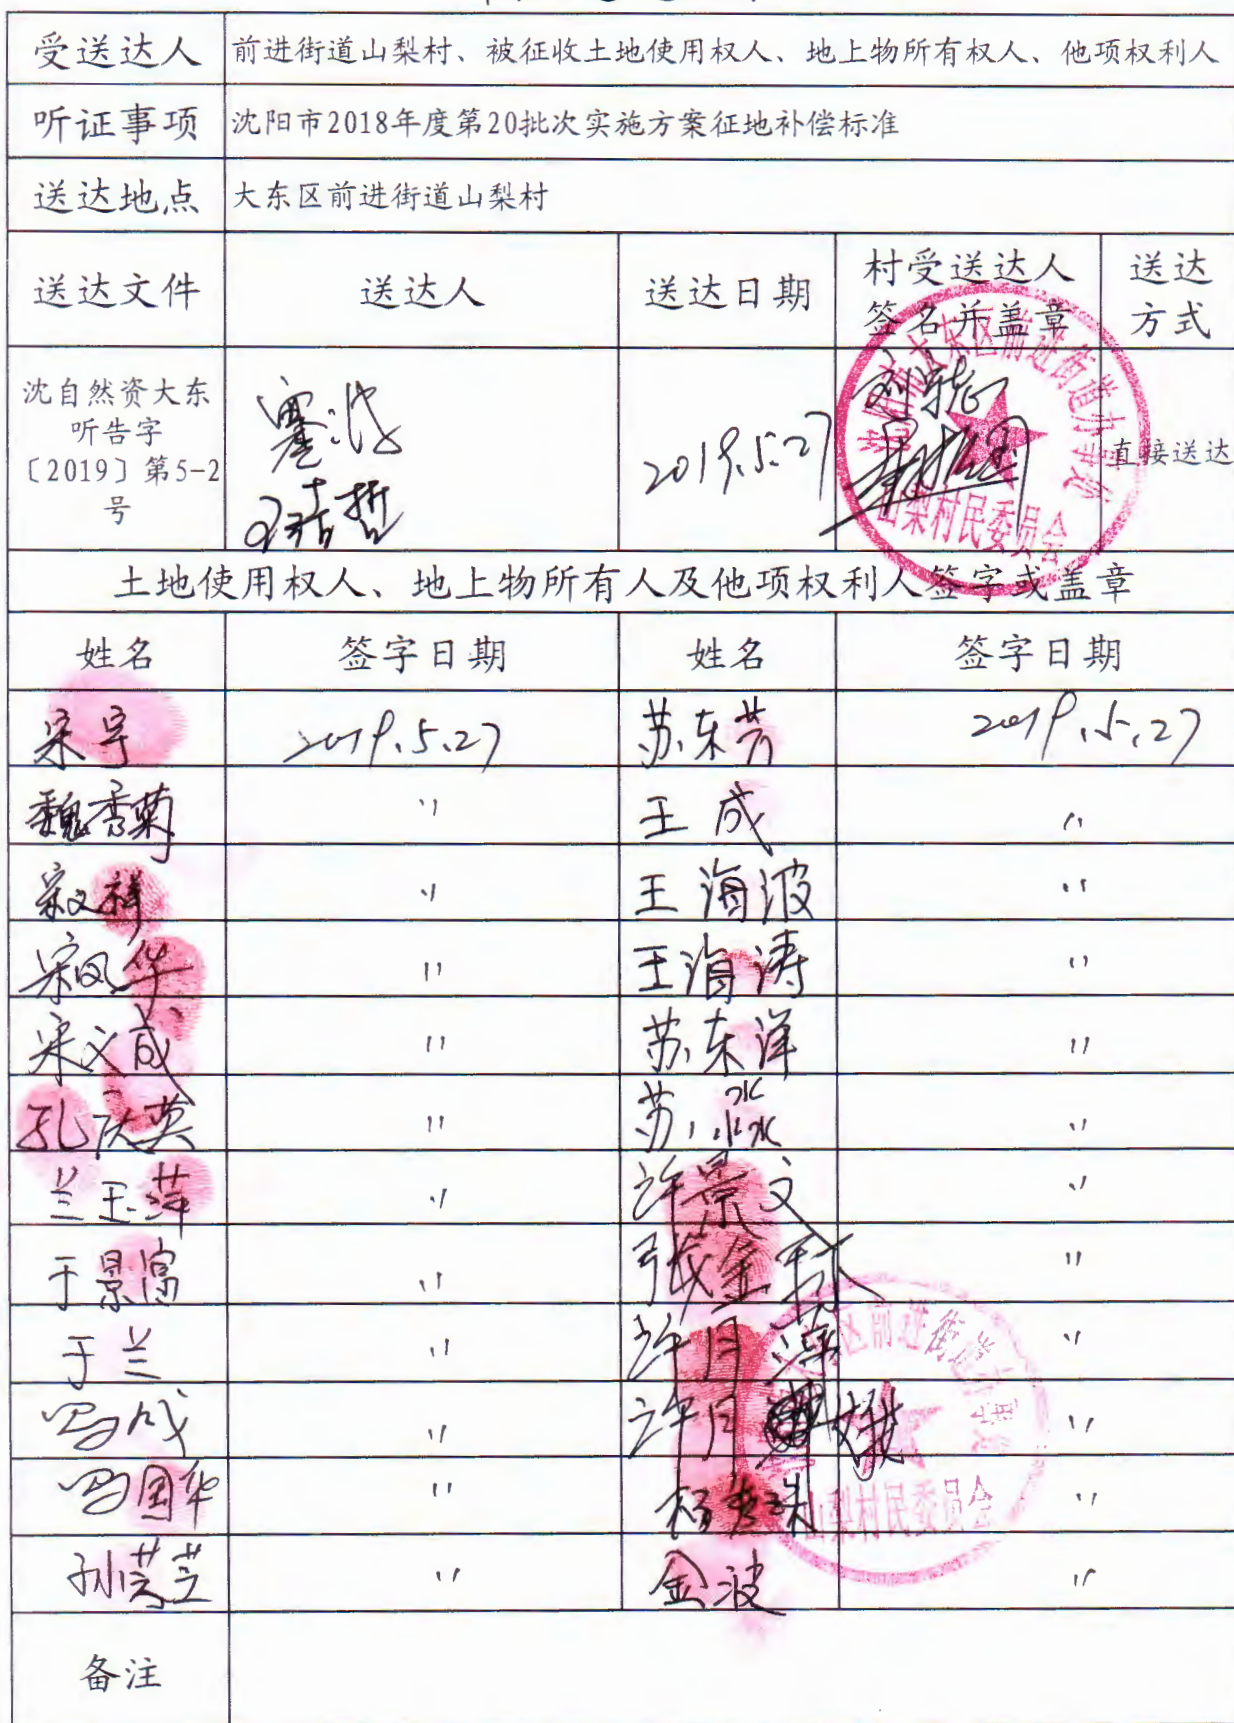 受送达人 前进街道山梨村、被征收土地使用权人、地上物所有权人、他项权利人
听证事项 沈阳市2018年度第20批次实施方案征地补偿标准
送达地点 大东区前进街道山梨村
送达文件 送达人 送达日期 村受送达人 送达
签名并盖章 方式
沈自然资大东
听告字
〔2019〕第5-2
号
2019.5.27
直接送达
大东区前进街道办事处
山梨村民委员会
土地使用权人、地上物所有人及他项权利人签字或盖章
姓名 签字日期 姓名 签字日期
宋宇 2019.5.27 苏东芳 2019.5.27
魏秀菊 〃 王成 〃
宋义祥 〃 王海波 〃
宋凤华 〃 王海涛 〃
宋义成 〃 苏东洋 〃
孔庆英 〃 苏淼 〃
兰玉萍 〃 许景文 〃
于景富 〃 张金环 〃
于兰 〃 许月 〃
冯成 〃 许月娥 〃
冯国华 〃 杨秀珠 〃
孙芝 〃 金波 〃
区前进街道办事处
山梨村民委员会
备注